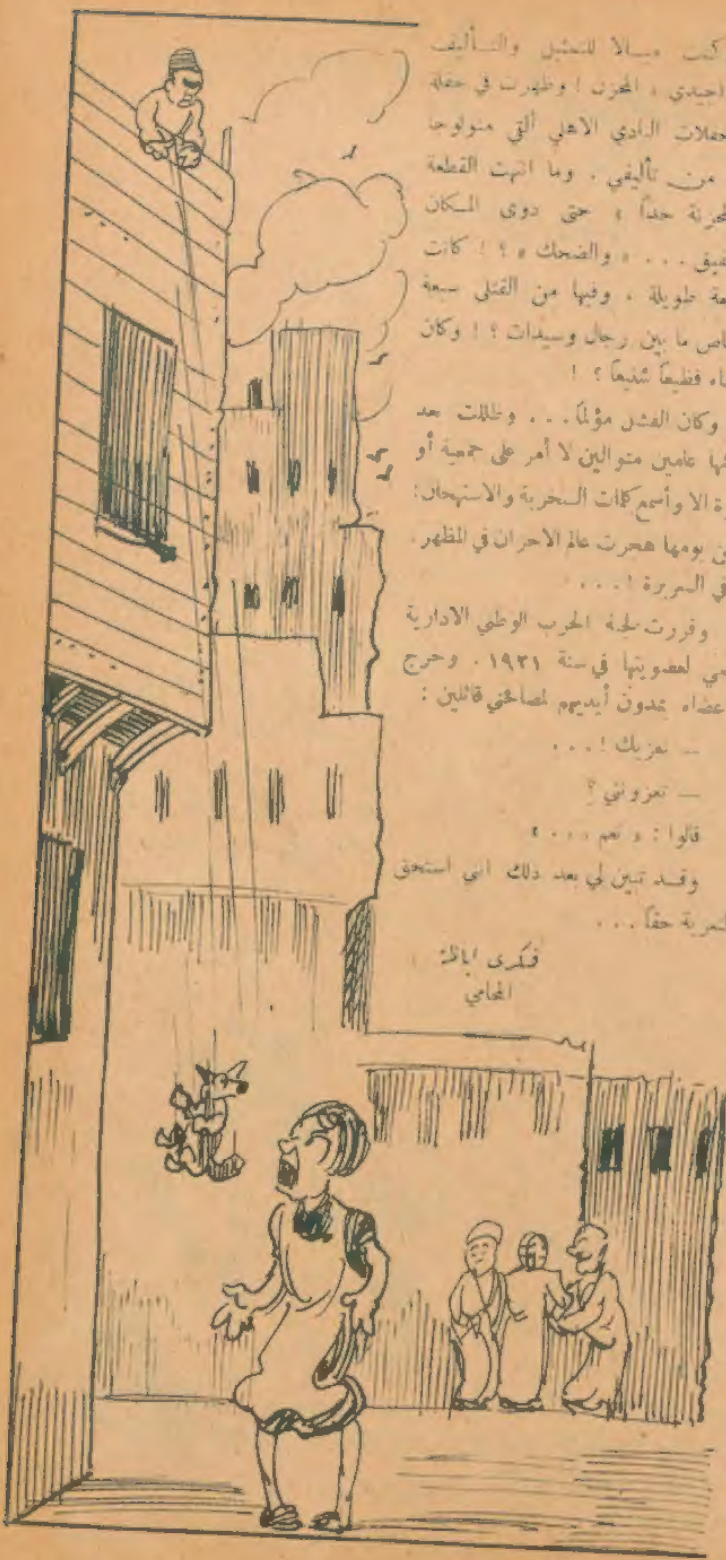 كنت ميالا للتمثيل والتأليف
المحزن ! وظهرت في حفلة
حفلات النادي الاهلي ألقي منولوجا
من تأليفي . وما انتهت القطعة
حزنة جداً » حتى دوى المكان
... « والضحك » ؟ ! كانت
طويلة . وفيها من القتلى سبعة
ما بين رجال وسيدات ؟ ! وكان
فظيعاً شنيعاً ؟ !
وكان الفشل مؤلماً ... وظللت بعد
عامين متوالين لا أمر على جمعية أو
الا وأسمع كلمات السخرية والاستهجان :
يومها هجرت عالم الاحزان في المظهر .
في السريرة ! ...
وقررت لجنة الحزب الوطني الادارية
لعضويتها في سنة ١٩٢١ . وخرج
يمدون أيديهم لمصافحتي قائلين :
— نعزيك ! ...
— تعزونني ؟
قالوا : « نعم ... »
وقد تبين لي بعد ذلك انني استحق
حقاً ...
فكرى اباظة
المحامي